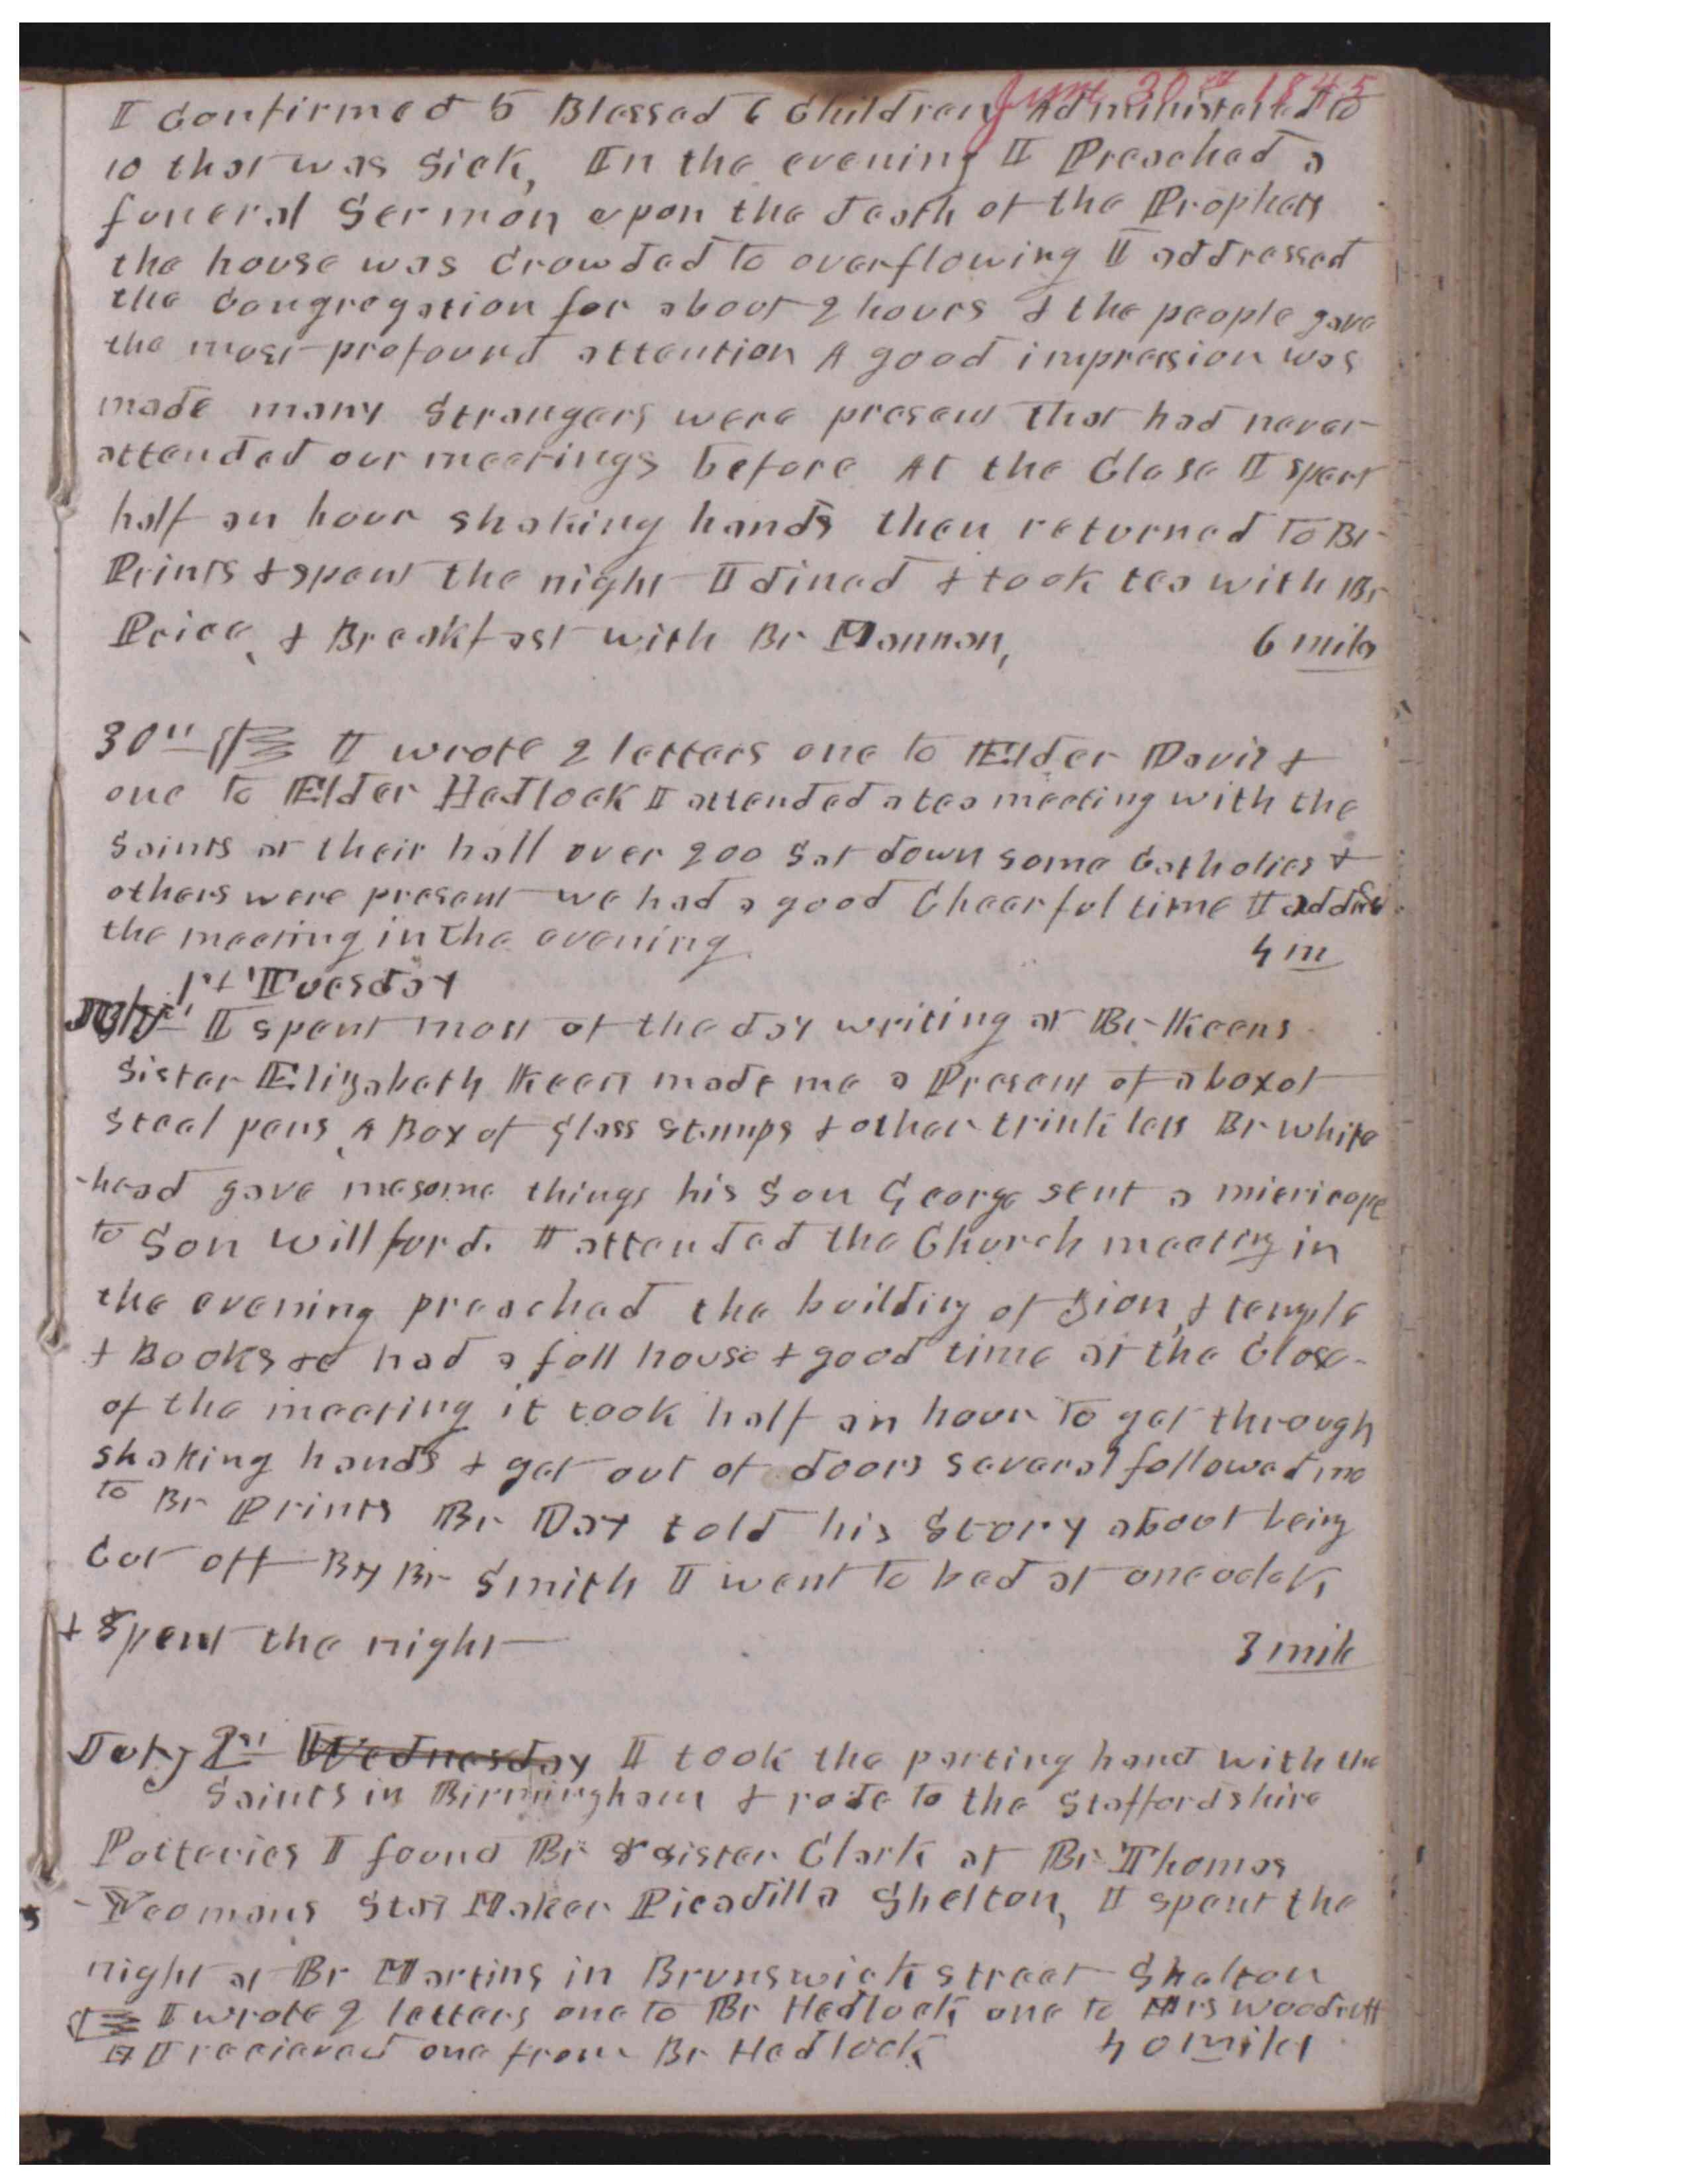 June 30th 1845
I Confirmed 5 Blessed 6 Children Administered to
10 that was Sick, In the evening I Preached a
funeral Sermon upon the death of the Prophets
the house was Crowded to overflowing I addressed
the Congregation for about 2 hours & the people gave
the most profound attention A good impression was
made many Strangers were present that had never
attended our meetings before At the Close I spent
half an hour shaking hands then returned to Br
Prints & spent the night I dined & took tea with Br
Price, & Breakfast with Br Mannan, 6 mils
30th I wrote 2 letters one to Elder Davis &
one to Elder Hedlock I attended a tea meeting with the
Saints at their hall over 200 Sat down some Catholics &
others were present we had a good Cheerful time I addrs
the meeting in the evening 4 m
1st Tuesday
July I spent most of the day writing at Br Keens
Sister Elizabeth Keen made me a Present of a box of
Steel pens, A Box of glass Stamps & other trinklets Br white
-head gave me some things his Son George sent a micricope
to Son Willford. I attended the Church meeting in
the evening preached the building of Zion, & temple
& Books &c had a full house & good time at the Close
of the meeting it took half an hour to get through
shaking hands & get out of doors several followed me
to Br Prints Br Day told his Story about being
Cut off By Br Smith I went to bed at one oclok,
& Spent the night 3 mile
July 2nd Wednesday I took the parting hand with the
Saints in Birmingham & rode to the Staffordshire
Potteries I found Br & sister Clark at Br Thomas
Yeomans Stay Maker Picadilla Shelton, I spent the
night at Br Martins in Brunswick street Shelton
I wrote 2 letters one to Br Hedlock, one to Mrs Woodruff
I recieved one from Br Hedlock 40 miles